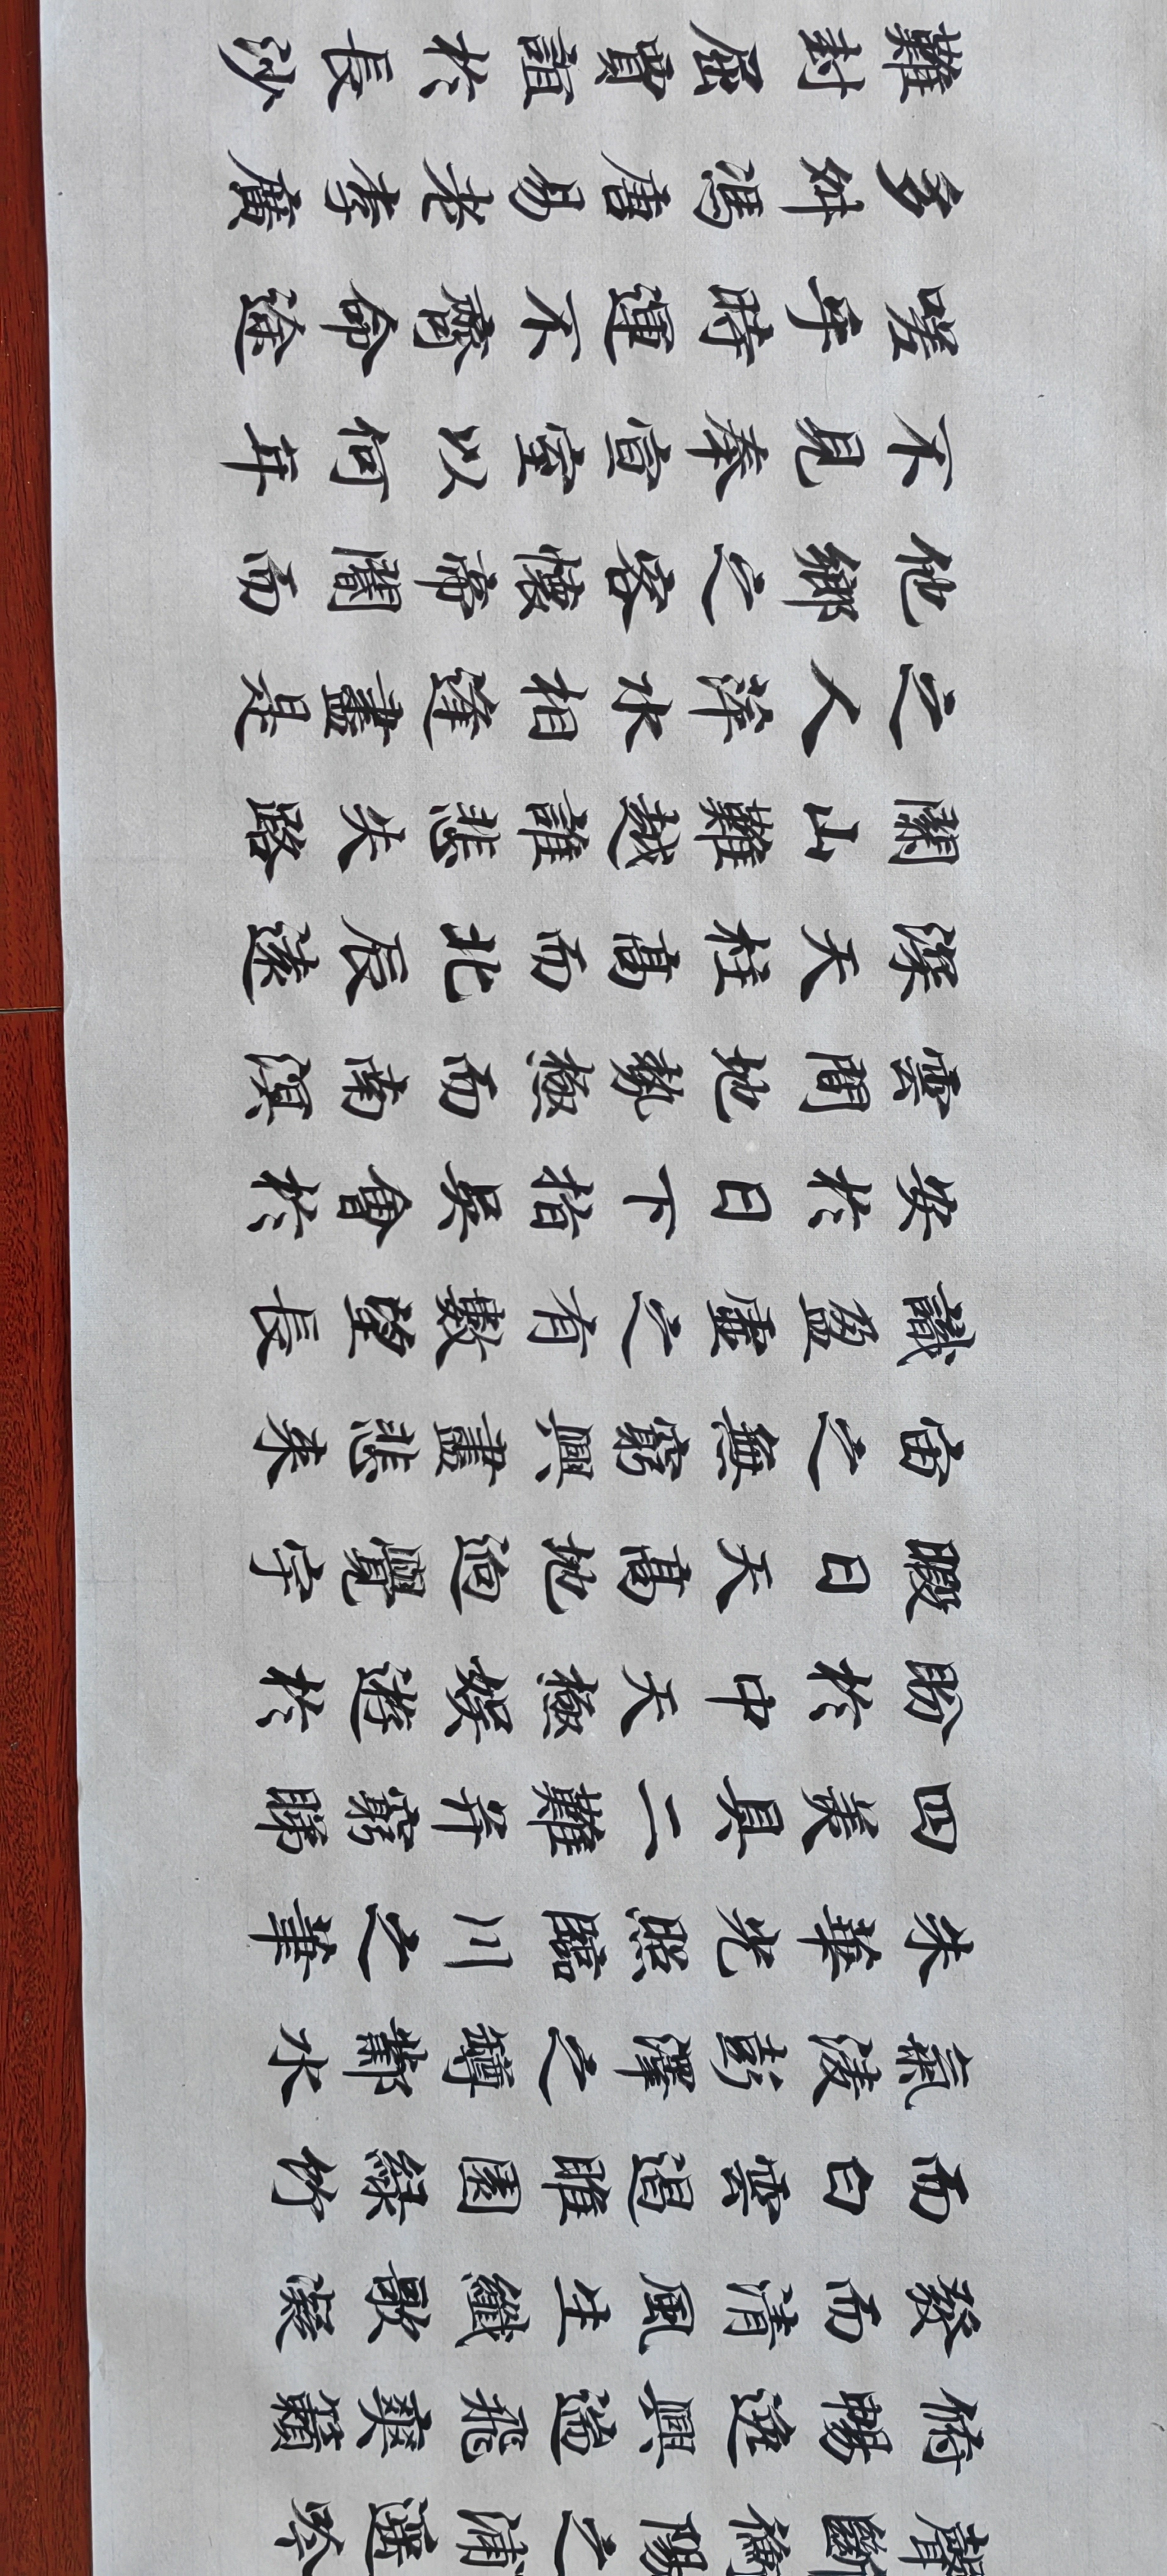 聲斷衡陽之浦遥吟
俯暢逸興遄飛爽籟
發而清風生纖歌凝
而白雲遏睢園綠竹
氣淩彭澤之罇鄴水
朱華光照臨川之筆
四美具二難并窮睇
盼於中天極娛遊於
暇日天高地迥覺宇
宙之無窮興盡悲來
識盈虛之有數望長
安於日下指吳會於
雲間地勢極而南溟
深天柱高而北辰遠
關山難越誰悲失路
之人萍水相逢盡是
他鄉之客懷帝閽而
不見奉宣室以何年
嗟乎時運不齊命途
多舛馮唐易老李廣
難封屈賈誼於長沙